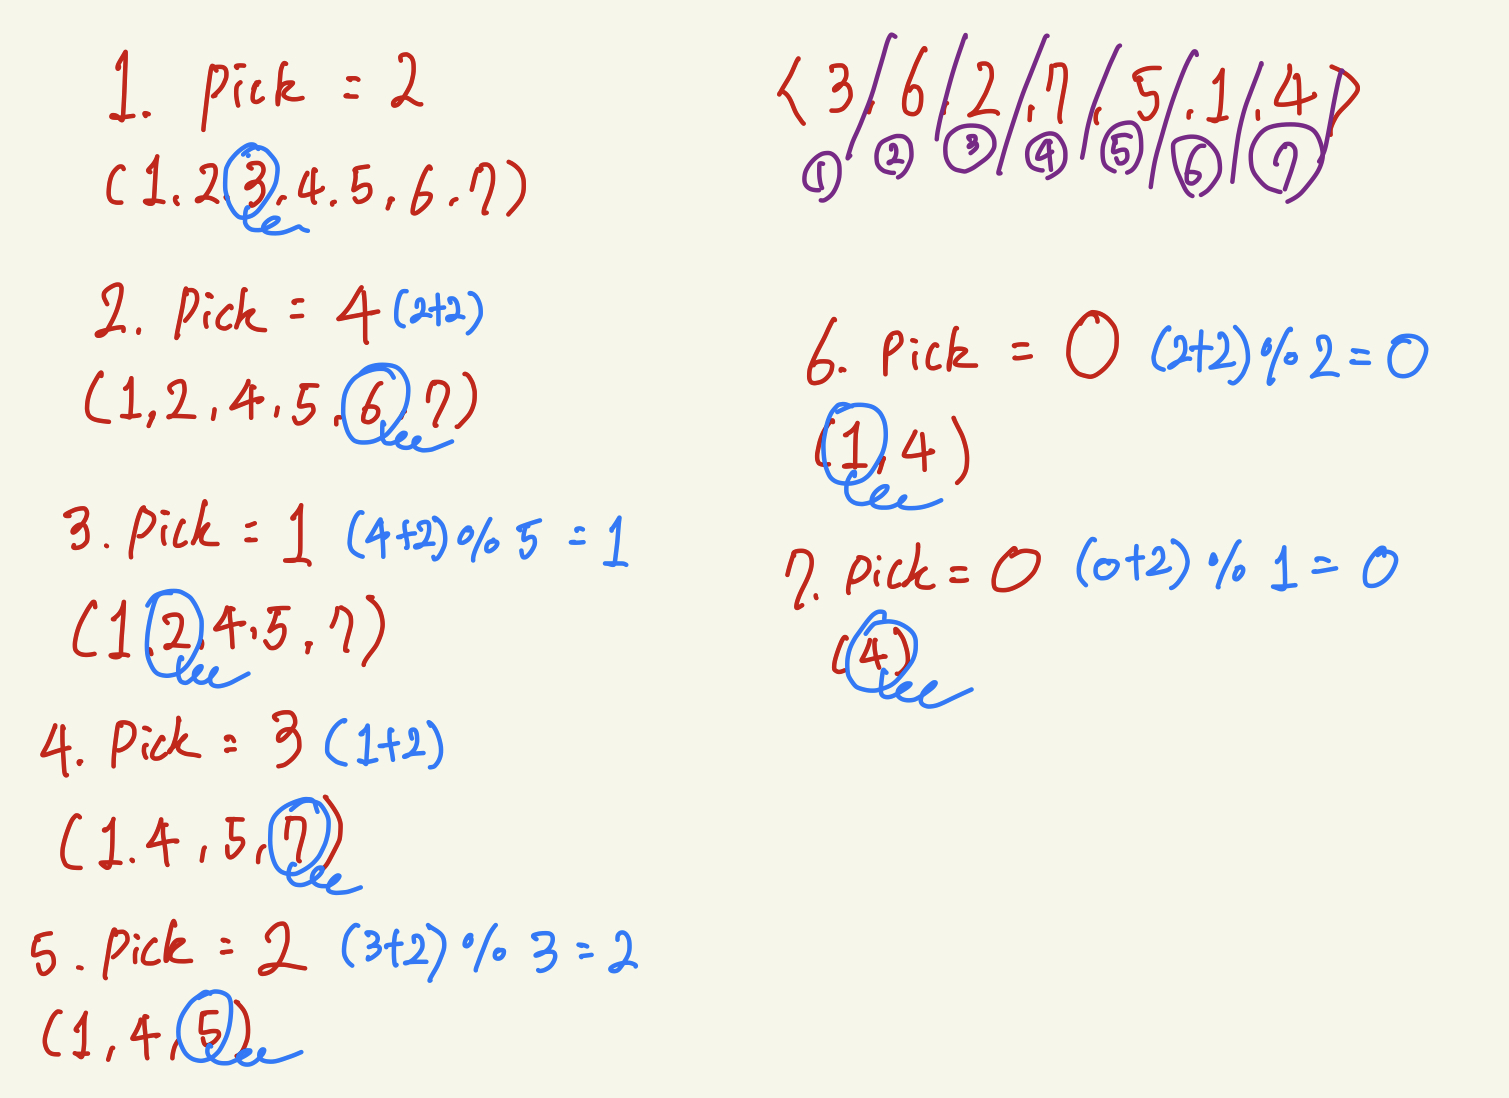 1. pick = 2
(1.2.3.4.5.6.7)
2. pick = 4 (2+2)
(1,2,4,5,6,7)
3. pick = 1 (4+2)%5=1
(1,2,4,5,7)
4. pick = 3 (1+2)
(1.4,5,7)
5. pick = 2 (3+2)%3=2
(1,4,5)
<3,6,2,7,5,1,4>
① ② ③ ④ ⑤ ⑥ ⑦
6. pick = 0 (2+2)%2=0
(1,4)
7. pick = 0 (0+2)%1=0
(4)